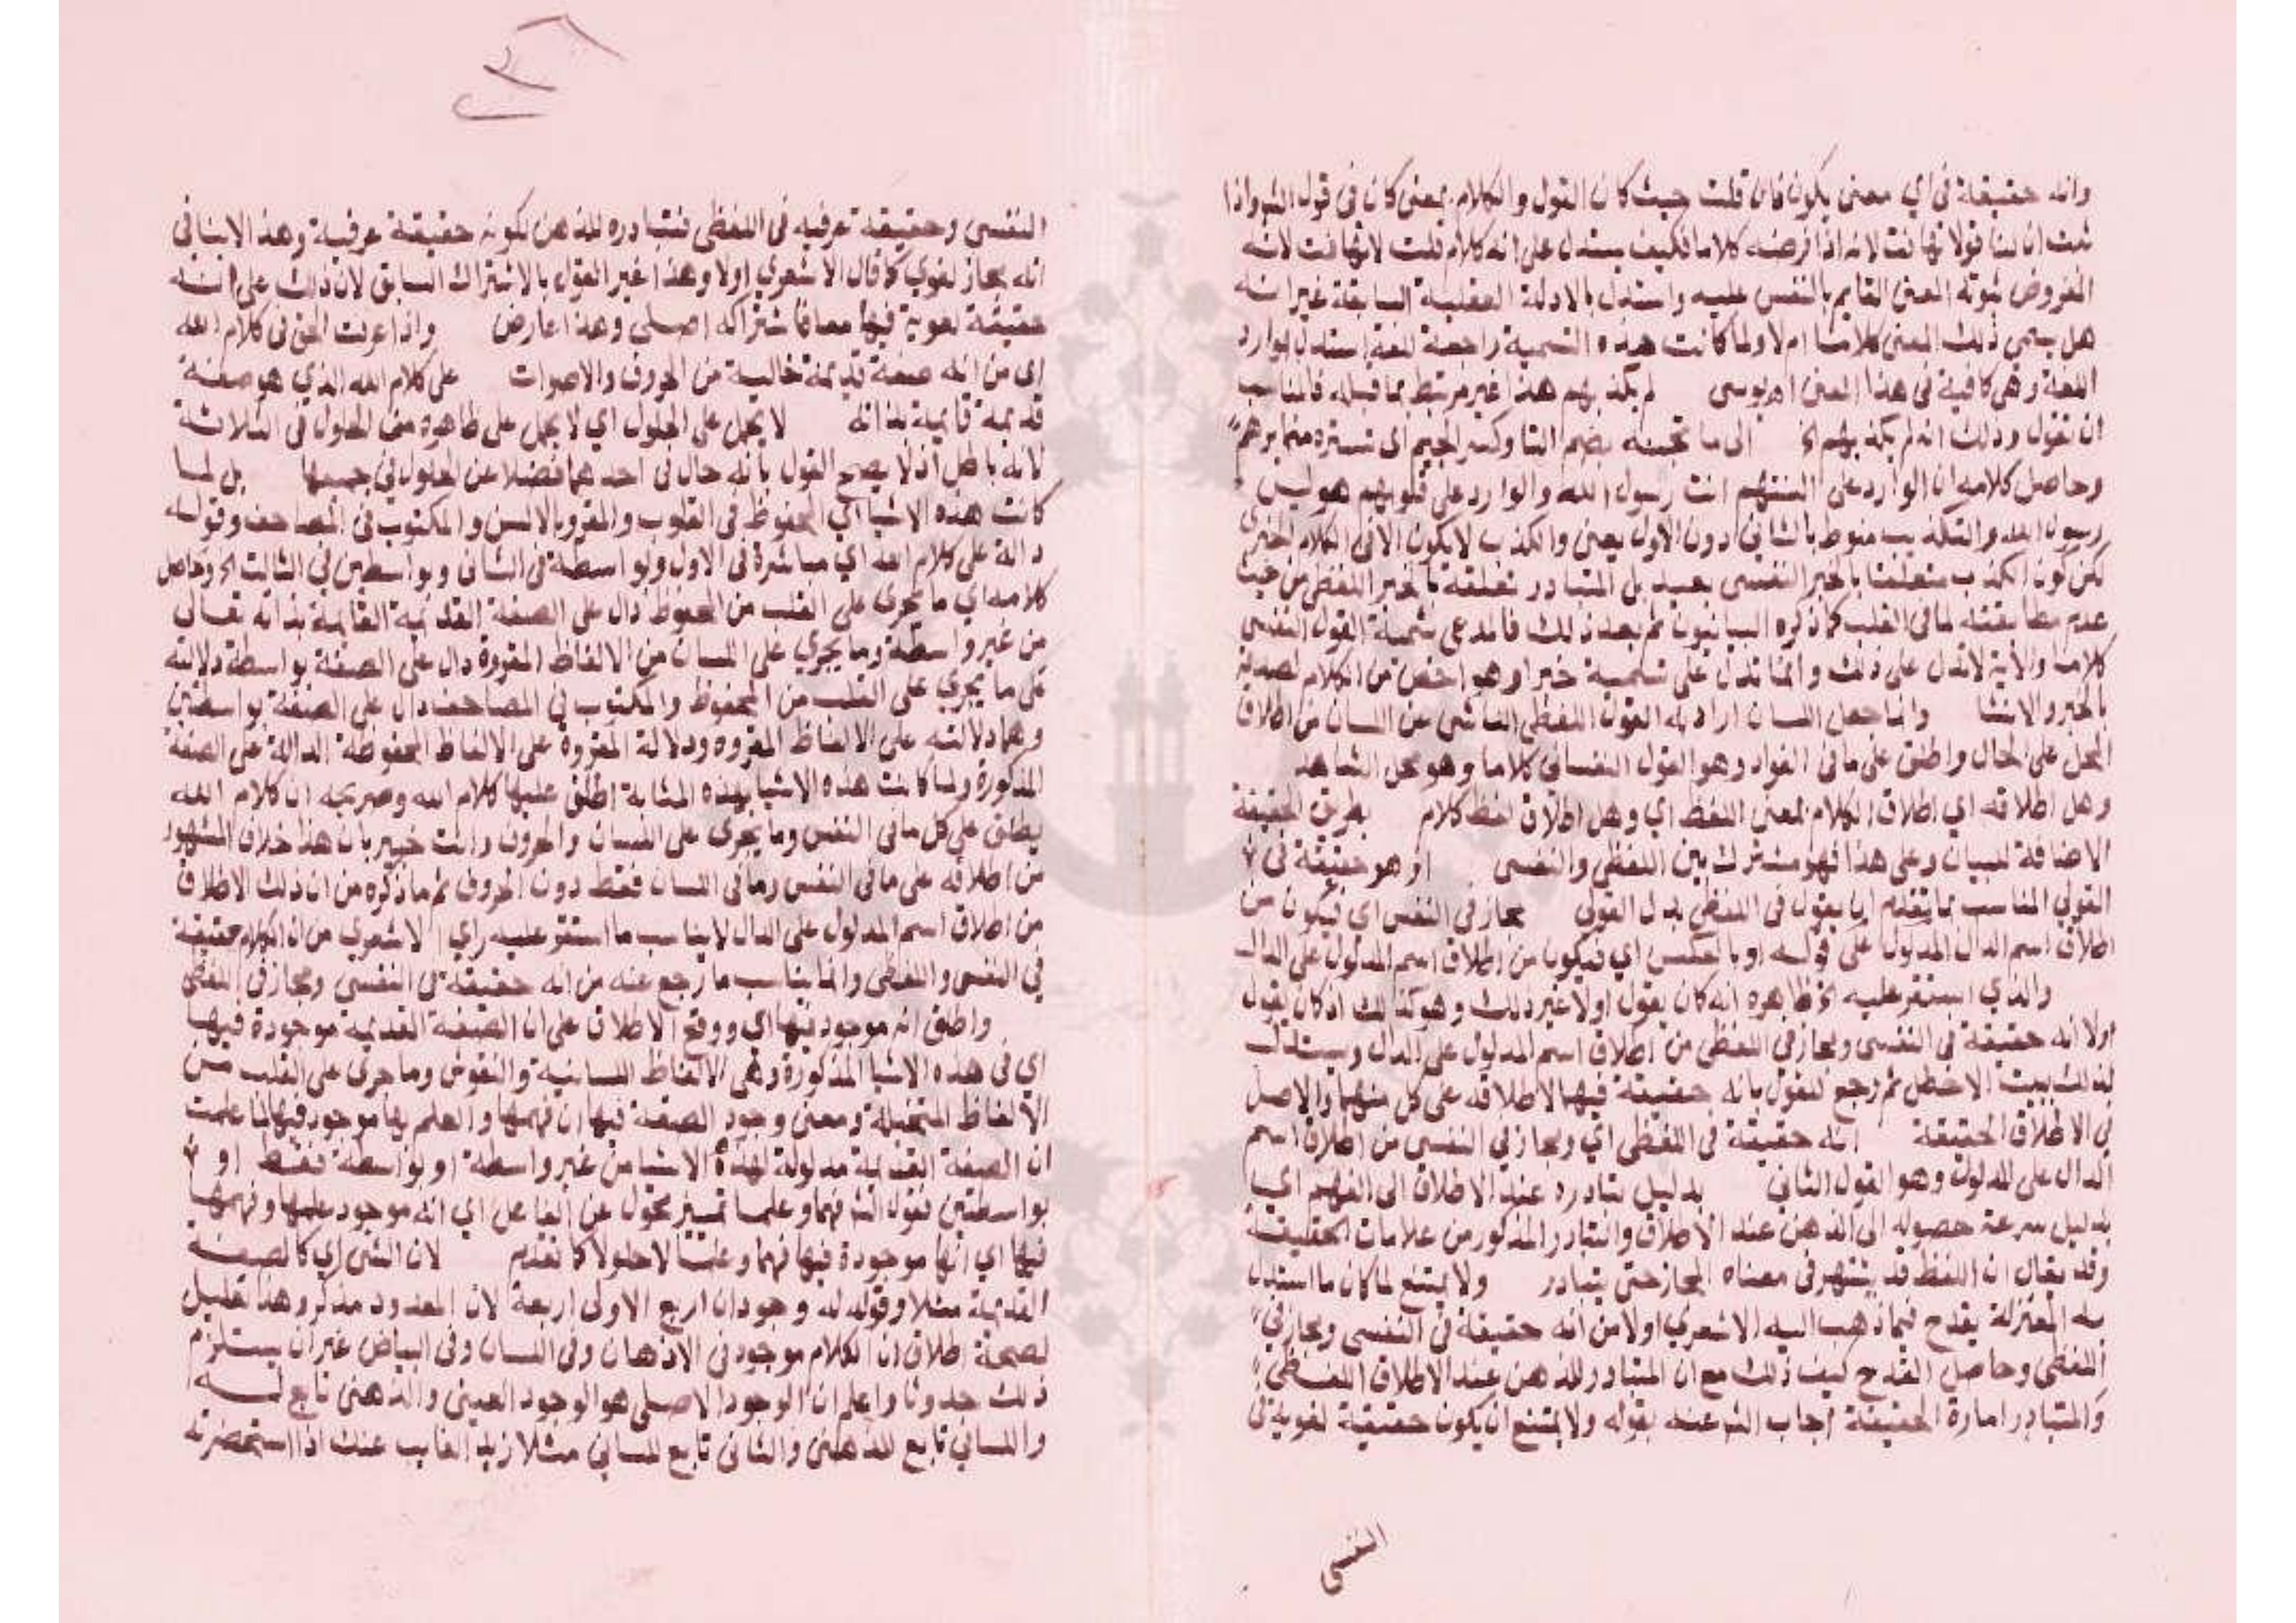 وانه حقيقة في اي معنى يكون فان قلت حيث كان القول والكلام بمعنى كان في قول الشر واذا
ثبت ان لنا قولا تهافت لانه اذا فرضه كلاما فكيف يستدل على انه كلام قلت لا تهافت لانه
المفروض ثبوته المعنى القايم بالنفس عليه واستدل بالادلة العقلية السابقة غير انه
هل يسمى ذلك المعنى كلاما ام لا ولما كانت هذه التسمية راجعة للغة استدل بوارد
اللغة وهي كافية في هذا المعنى اهـ يوسي لم يكذبهم هذا غير مرتبط بما قبله فالمناسب
ان تقول وذلك انه لم يكذبهم الخ الى ما تجنه بضم التا وكسر الجيم اي تستره ضمايرهم
وحاصل كلامه ان الوارد على السنتهم انت رسول الله والوارد على قلوبهم هو ليس
رسول الله والتكذيب منوط بالثاني دون الاول يعني والكذب لا يكون الا في الكلام الخبري
لكن كون الكذب متعلقا بالخبر النفسي بعيد بل المتبادر تعلقه بالخبر اللفظي من حيث
عدم مطابقته لما في القلب كما ذكره البيانيون ثم بعد ذلك فالمدعى تسمية القول النفسي
كلاما والاية لا تدل على ذلك وانما تدل على تسميته خبرا وهو اخص من الكلام لصدقه
بالخبر والانشا وانما جعل اللسان اراد به القول اللفظي الناشي عن اللسان من اطلاق
المحل على الحال واطلق على ما في الفواد وهو القول النفساني كلاما وهو محل الشاهد
وهل اطلاقه اي اطلاق الكلام لمعنى اللفظ اي وهل اطلاق لفظ كلام بطريق الحقيقة
الاضافة للبيان وعلى هذا فهو مشترك بين اللفظي والنفسي او هو حقيقة في
القولي المناسب بما يتقدم ان يقول في اللفظي بدل القولي مجاز في النفس اي فيكون من
اطلاق اسم الدال المدلول على قوله او بالعكس اي فيكون من اطلاق اسم المدلول على الدال
والذي استقر عليه الخ ظاهره انه كان يقول اولا غير ذلك وهو كذلك اذ كان يقول
اولا انه حقيقة في النفسي ومجاز في اللفظي من اطلاق اسم المدلول على الدال ويستدل
لذلك ببيت الاخطل ثم رجع للقول بانه حقيقة فيهما لاطلاقه على كل منهما والاصل
في الاطلاق الحقيقة انه حقيقة في اللفظي اي ومجاز في النفسي من اطلاق اسم
الدال على المدلول وهو القول الثاني بدليل تبادره عند الاطلاق الى الفهم اي
بدليل سرعة حصوله الى الذهن عند الاطلاق والتبادر المذكور من علامات الحقيقة
وقد يقال ان اللفظ قد يشتهر في معناه المجاز حتى يتبادر ولا يمتنع لما كان ما استدل
به المعتزلة يقدح فيما ذهب اليه الاشعري اولا من انه حقيقة في النفسي ومجاز في
اللفظي وحاصل القدح كيف ذلك مع ان المتبادر للذهن عند الاطلاق اللفظي
والمتبادر امارة الحقيقة اجاب الشر عنه بقوله ولا يمتنع ان يكون حقيقة لغوية في
النفسي
النفسي وحقيقة عرفية في اللفظي فتبادره للذهن لكونه حقيقة عرفية وهذا لا ينافي
انه مجاز لغوي كما قال الاشعري اولا وهذا غير القول بالاشتراك السابق لان ذلك على انه
حقيقة لغوية فيهما معا فاشتراكه اصلي وهذا عارض واذا عرفت الحق في كلام الله
اي من انه صفة قديمة خالية من الحروف والاصوات على كلام الله الذي هو صفة
قديمة قايمة بذاته لا يحمل على الحلول اي لا يحمل على ظاهره من الحلول في الثلاثة
لانه باطل اذ لا يصح القول بانه حال في احدهما فضلا عن الحلول في جميعها بل لما
كانت هذه الاشيا اي المحفوظ في القلوب والمقرو بالالسن والمكتوب في المصاحف وقوله
دالة على كلام الله اي مباشرة في الاول وبواسطة في الثاني وبواسطتين في الثالث الخ وحاصل
كلامه اي ما يجري على القلب من المحفوظ دال على الصفة القديمة القايمة بذاته تعالى
من غير واسطة وما يجري على اللسان من الالفاظ المقروة دال على الصفة بواسطة دلالته
على ما يجري على القلب من المحفوظ والمكتوب في المصاحف دال على الصفة بواسطتين
وهما دلالته على الالفاظ المقروه ودلالة المقروة على الالفاظ المحفوظة الدالة على الصفة
المذكورة ولما كانت هذه الاشيا بهذه المثابة اطلق عليها كلام الله وصريحه ان كلام الله
يطلق على كل ما في النفس وما يجري على اللسان والحروف وانت خبير بان هذا خلاف المشهور
من اطلاقه على ما في النفس وما في اللسان فقط دون الحروف ثم ما ذكره من ان ذلك الاطلاق
من اطلاق اسم المدلول على الدال لا يناسب ما استقر عليه راي الاشعري من ان الكلام حقيقة
في النفسي واللفظي وانما يناسب ما رجع عنه من انه حقيقة في النفسي ومجاز في اللفظي
واطلق انه موجود فيها اي ووقع الاطلاق على ان الصفة القديمة موجودة فيها
اي في هذه الاشيا المذكورة وهي الالفاظ اللسانية والنقوش وما جرى على القلب من
الالفاظ المتخيلة ومعنى وجود الصفة فيها ان فهمها والعلم بها موجود فيها لما علمت
ان الصفة القديمة مدلولة لهذه الاشيا من غير واسطة او بواسطة فقط او
بواسطتين فقول الشر فهما وعلما تمييز محول عن الفاعل اي انه موجود علمها وفهمها
فيها اي انها موجودة فيها فهما وعلما لا حلولا كما تقدم لان الشي اي كالصفة
القديمة مثلا وقوله له وجودات اربع الاولى اربعة لان المعدود مذكر وهذا تعليل
لصحة اطلاق ان الكلام موجود في الاذهان وفي اللسان وفي البياض غير ان يستلزم
ذلك حدوثا واعلم ان الوجود الاصلي هو الوجود العيني والذهني تابع له
واللساني تابع للذهني والثاني تابع للساني مثلا زيد الغايب عنك اذا استحضرته